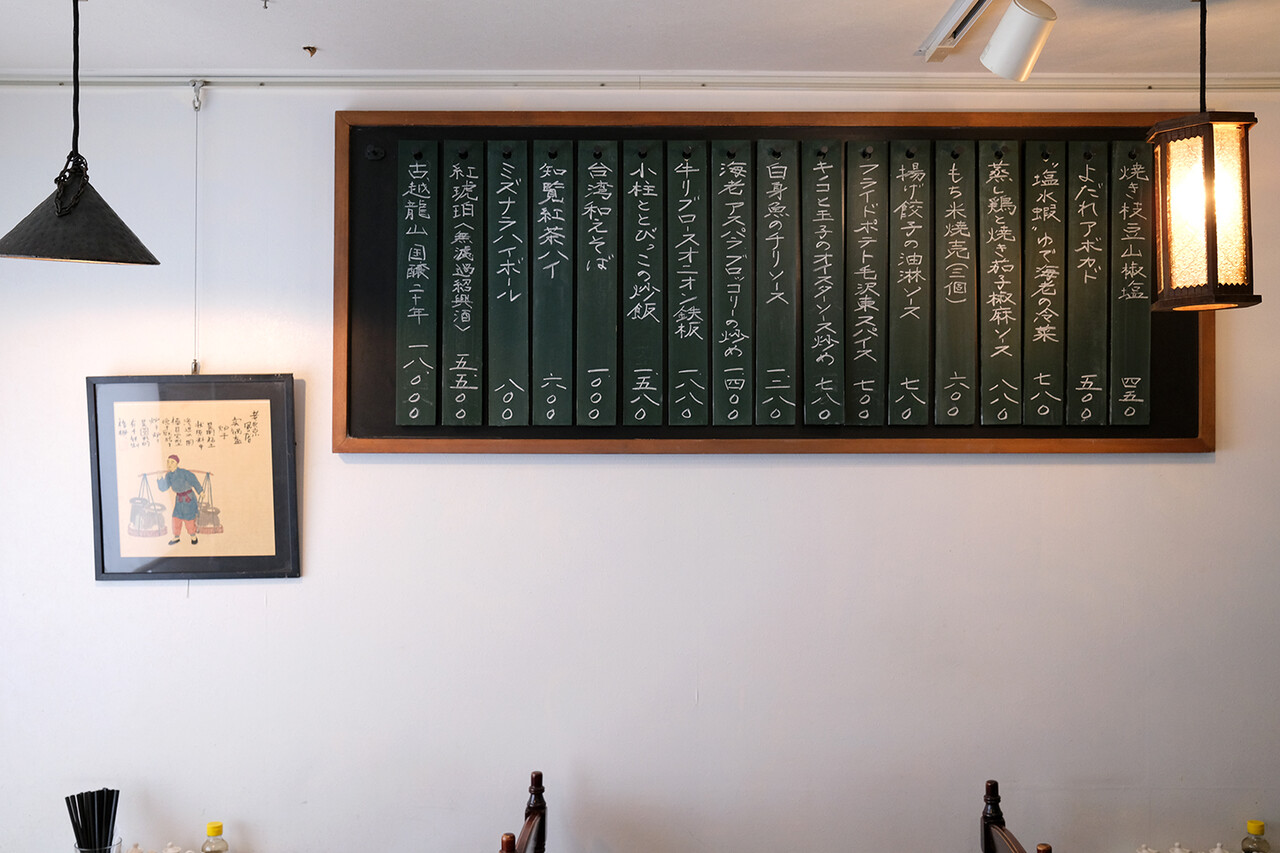 焼き枝豆山椒塩 四五〇
よだれアボカド 五〇〇
"塩水蝦"ゆで海老の冷菜 七八〇
蒸し鶏と焼き茄子椒麻ソース 八八〇
もち米焼売(三個) 六〇〇
揚げ餃子の油淋ソース 七八〇
フライドポテト毛沢東スパイス 七〇〇
キノコと玉子のオイスターソース炒め 七八〇
白身魚のチリソース 一.二八〇
海老アスパラブロッコリーの炒め 一.四〇〇
牛リブロースオニオン鉄板 一.八八〇
小柱ととびっこの炒飯 一.五八〇
台湾和えそば 一.〇〇〇
知覧紅茶ハイ 六〇〇
ミズナラハイボール 八〇〇
紅琥珀〈無濾過紹興酒〉 五.五〇〇
古越龍山 国醸二十年 一八.〇〇〇